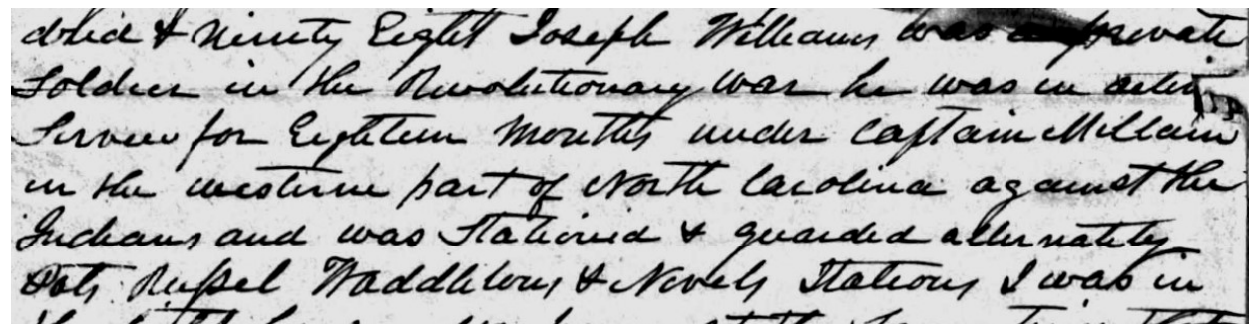 dred & Ninety Eight Joseph Williams was a private
Soldier in the Revolutionary war he was in active
Service for Eighteen Months under Captain McClain
in the westerne part of North Carolina against the
Indians and was Stationed & guarded alternately
Russel & Stations I was in